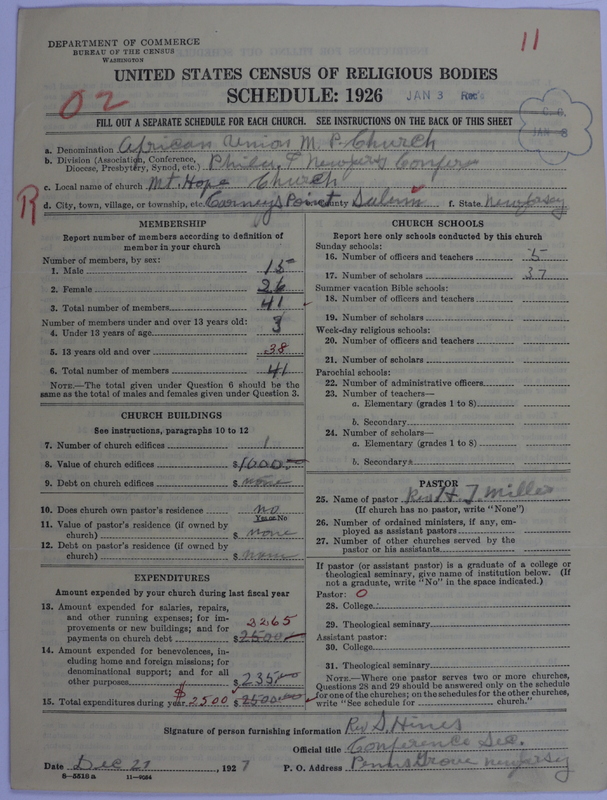 DEPARTMENT OF COMMERCE
BUREAU OF THE CENSUS
WASHINGTON
11
UNITED STATES CENSUS OF RELIGIOUS BODIES
SCHEDULE: 1926 JAN 3 Rec'd
02
C.O.
JAN 8
FILL OUT A SEPARATE SCHEDULE FOR EACH CHURCH. SEE INSTRUCTIONS ON THE BACK OF THIS SHEET
a. Denomination African Union M. P. Church
b. Division (Association, Conference, Diocese, Presbytery, Synod, etc.) Phila. & New Jersy Confern
c. Local name of church Mt. Hope Church
R
d. City, town, village, or township, etc. Carneys Point e. County Salem f. State New Jersy
MEMBERSHIP
Report number of members according to definition of
member in your church
Number of members, by sex:
1. Male 15
2. Female 26
3. Total number of members 41
Number of members under and over 13 years old:
4. Under 13 years of age 3
5. 13 years old and over 38
6. Total number of members 41
NOTE.—The total given under Question 6 should be the
same as the total of males and females given under Question 3.
CHURCH BUILDINGS
See instructions, paragraphs 10 to 12
7. Number of church edifices 1
8. Value of church edifices $1000.00
9. Debt on church edifices $ none
10. Does church own pastor's residence no
Yes or No
11. Value of pastor's residence (if owned by
church) $ none
12. Debt on pastor's residence (if owned by
church) $ none
EXPENDITURES
Amount expended by your church during last fiscal year
13. Amount expended for salaries, repairs,
and other running expenses; for im-
provements or new buildings; and for 2265
payments on church debt $2500
14. Amount expended for benevolences, in-
cluding home and foreign missions; for
denominational support; and for all
other purposes $235.00
15. Total expenditures during year $2500 $2500.00
CHURCH SCHOOLS
Report here only schools conducted by this church
Sunday schools:
16. Number of officers and teachers 5
17. Number of scholars 37
Summer vacation Bible schools:
18. Number of officers and teachers
19. Number of scholars
Week-day religious schools:
20. Number of officers and teachers
21. Number of scholars
Parochial schools:
22. Number of administrative officers
23. Number of teachers—
a. Elementary (grades 1 to 8)
b. Secondary
24. Number of scholars—
a. Elementary (grades 1 to 8)
b. Secondary
PASTOR
25. Name of pastor Rev H. J. Miller
(If church has no pastor, write "None")
26. Number of ordained ministers, if any, em-
ployed as assistant pastors
27. Number of other churches served by the
pastor or his assistants
If pastor (or assistant pastor) is a graduate of a college or
theological seminary, give name of institution below. (If
not a graduate, write "No" in the space indicated.)
Pastor: O
28. College
29. Theological seminary
Assistant pastor:
30. College
31. Theological seminary
NOTE.—Where one pastor serves two or more churches,
Questions 28 and 29 should be answered only on the schedule
for one of the churches; on the schedules for the other churches,
write "See schedule for church."
Signature of person furnishing information Rev S. Hines
Official title Conference Sec.
Date Dec 27, 1927 P. O. Address Penns Grove New Jersy
8—5518 a 11—9084